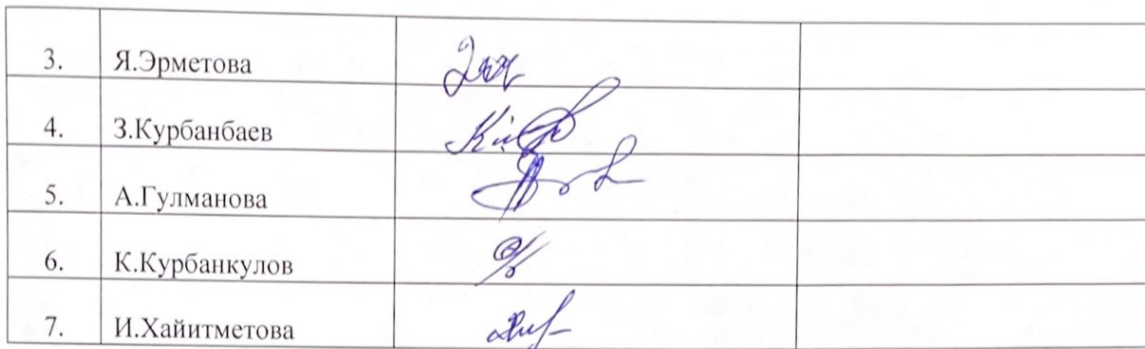 3. Я.Эрметова
4. З.Курбанбаев
5. А.Гулманова
6. К.Курбанкулов
7. И.Хайитметова